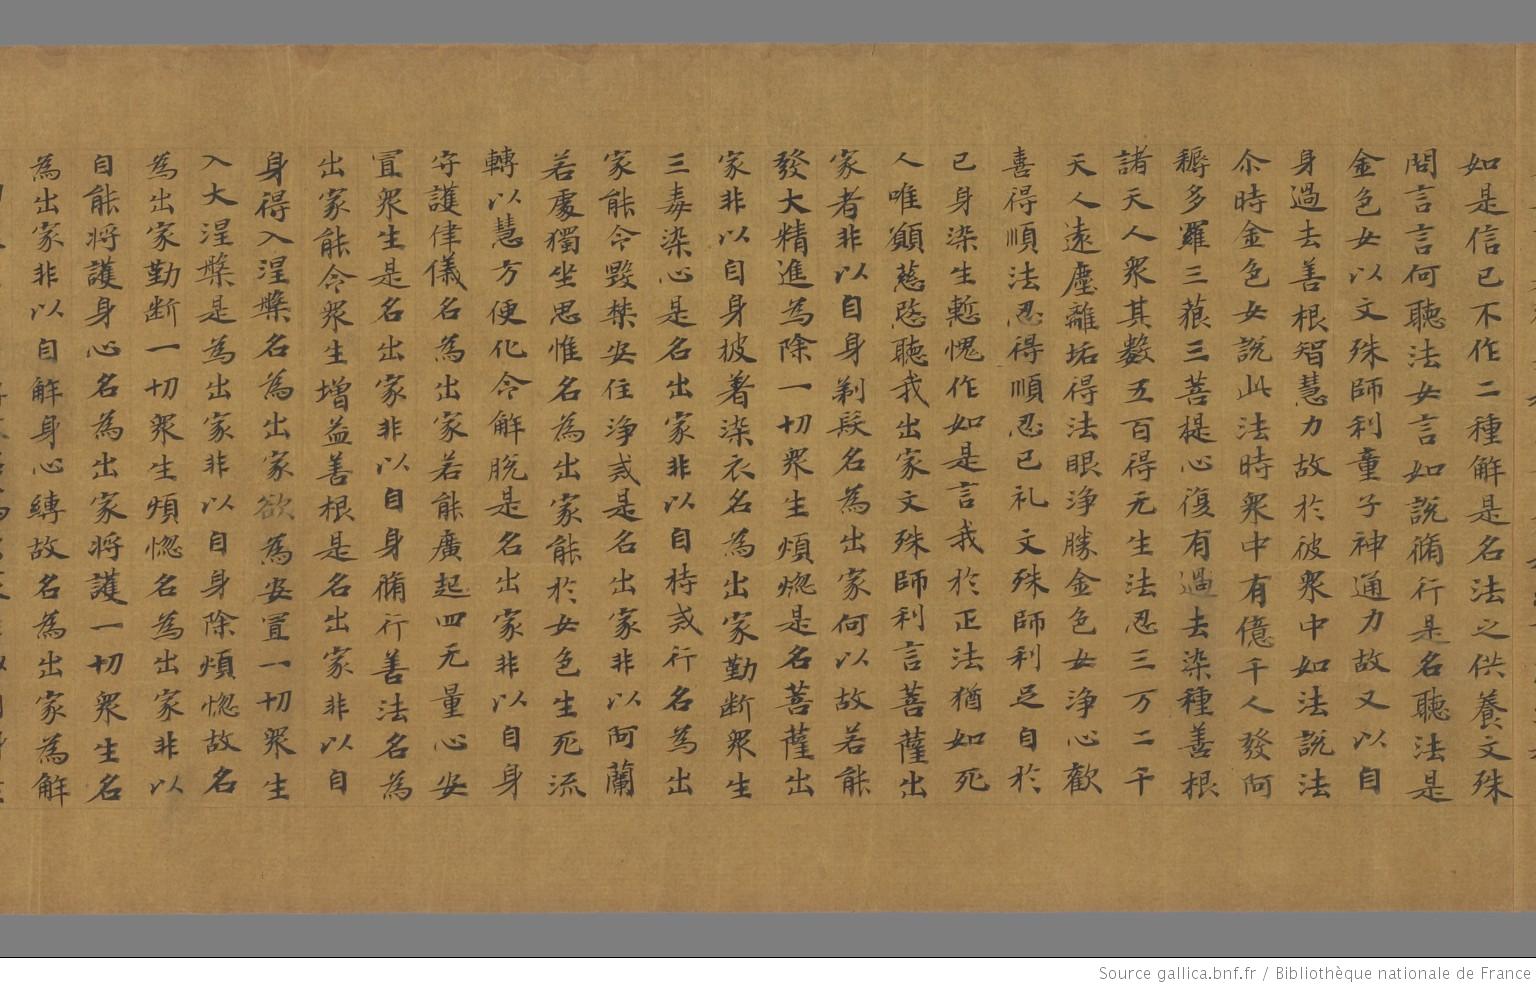 如是信已不作二種解是名法之供養文殊
問言言何聽法女言如說脩行是名聽法是
金色女以文殊師利童子神通力故又以自
身過去善根智慧力故於彼眾中如法說法
尒時金色女說此法時眾中有億千人發阿
耨多羅三藐三菩提心復有過去染種善根
諸天人眾其數五百得无生法忍三万二千
天人遠塵離垢得法眼淨勝金色女淨心歡
善得順法忍得順忍已礼文殊師利足自於
已身染生慙愧作如是言我於正法猶如死
人唯願慈愍聽我出家文殊師利言菩薩出
家者非以自身剃髮名為出家何以故若能
發大精進為除一切眾生煩惱是名菩薩出
家非以自身披著染衣名為出家勤斷眾生
三毒染心是名出家非以自持戒行名為出
家能令毀禁安住淨戒是名出家非以阿蘭
若處獨坐思惟名為出家能於女色生死流
轉以慧方便化令解脫是名出家非以自身
守護律儀名為出家若能廣起四无量心安
置眾生是名出家非以自身脩行善法名為
出家能令眾生增益善根是名出家非以自
身得入涅槃名為出家欲為安置一切眾生
入大涅槃是為出家非以自身除煩惱故名
為出家勤斷一切眾生煩惱名為出家非以
自能將護身心名為出家將護一切眾生名
為出家非以自解身心縛故名為出家為解